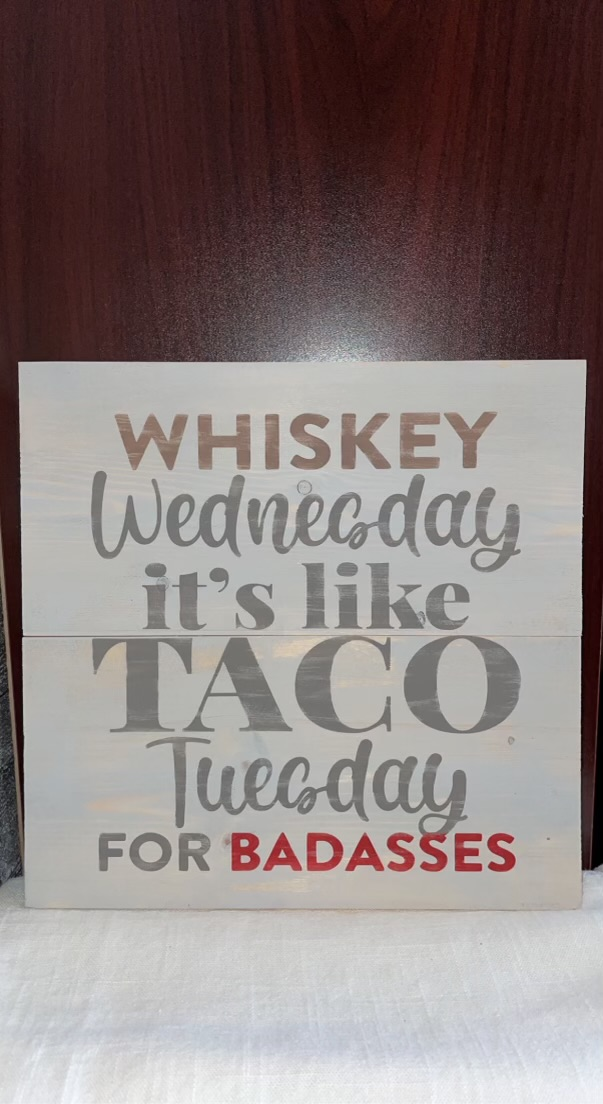 WHISKEY
Wednesday
it's like
TACO
Tuesday
FOR BADASSES